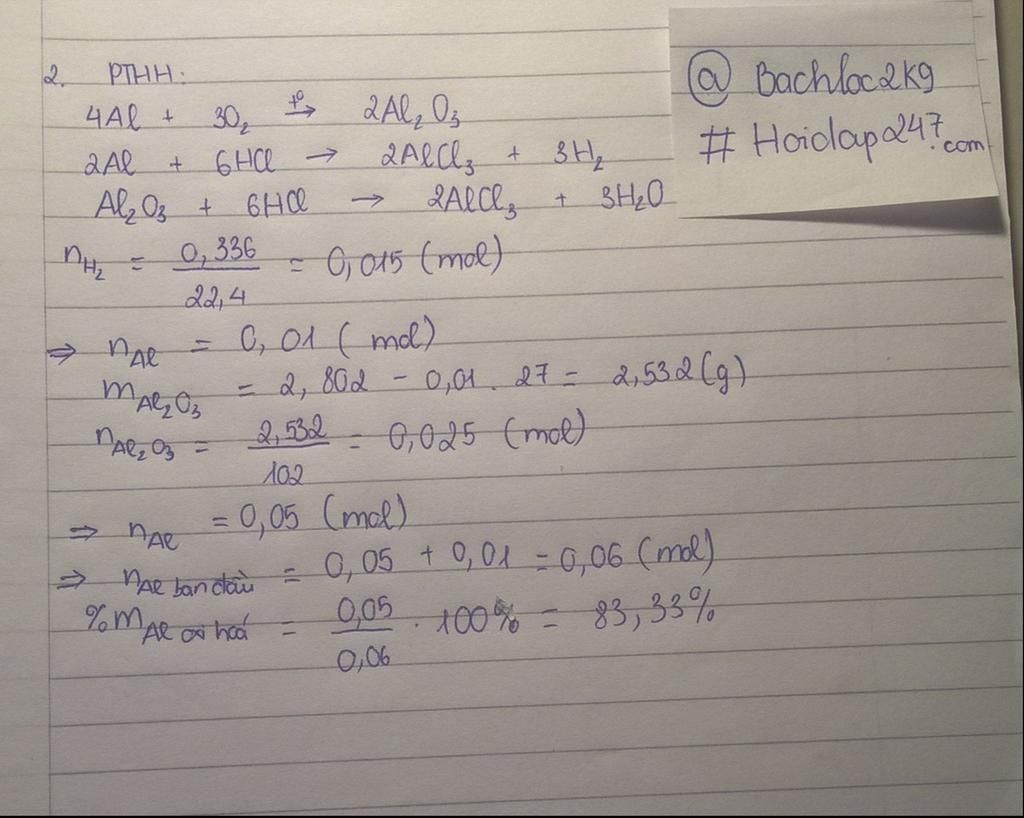 2. PTHH:
4Al + 3O₂ -t°-> 2Al₂O₃
2Al + 6HCl → 2AlCl₃ + 3H₂
Al₂O₃ + 6HCl → 2AlCl₃ + 3H₂O
n_H₂ = 0,336 / 22,4 = 0,015 (mol)
⇒ n_Al = 0,01 (mol)
m_Al₂O₃ = 2,802 - 0,01 . 27 = 2,532 (g)
n_Al₂O₃ = 2,532 / 102 = 0,025 (mol)
⇒ n_Al = 0,05 (mol)
⇒ n_Al ban đầu = 0,05 + 0,01 = 0,06 (mol)
%m_Al oxi hoá = 0,05 / 0,06 . 100% = 83,33%
@ Bachloc2k9
# Hoidap247.com